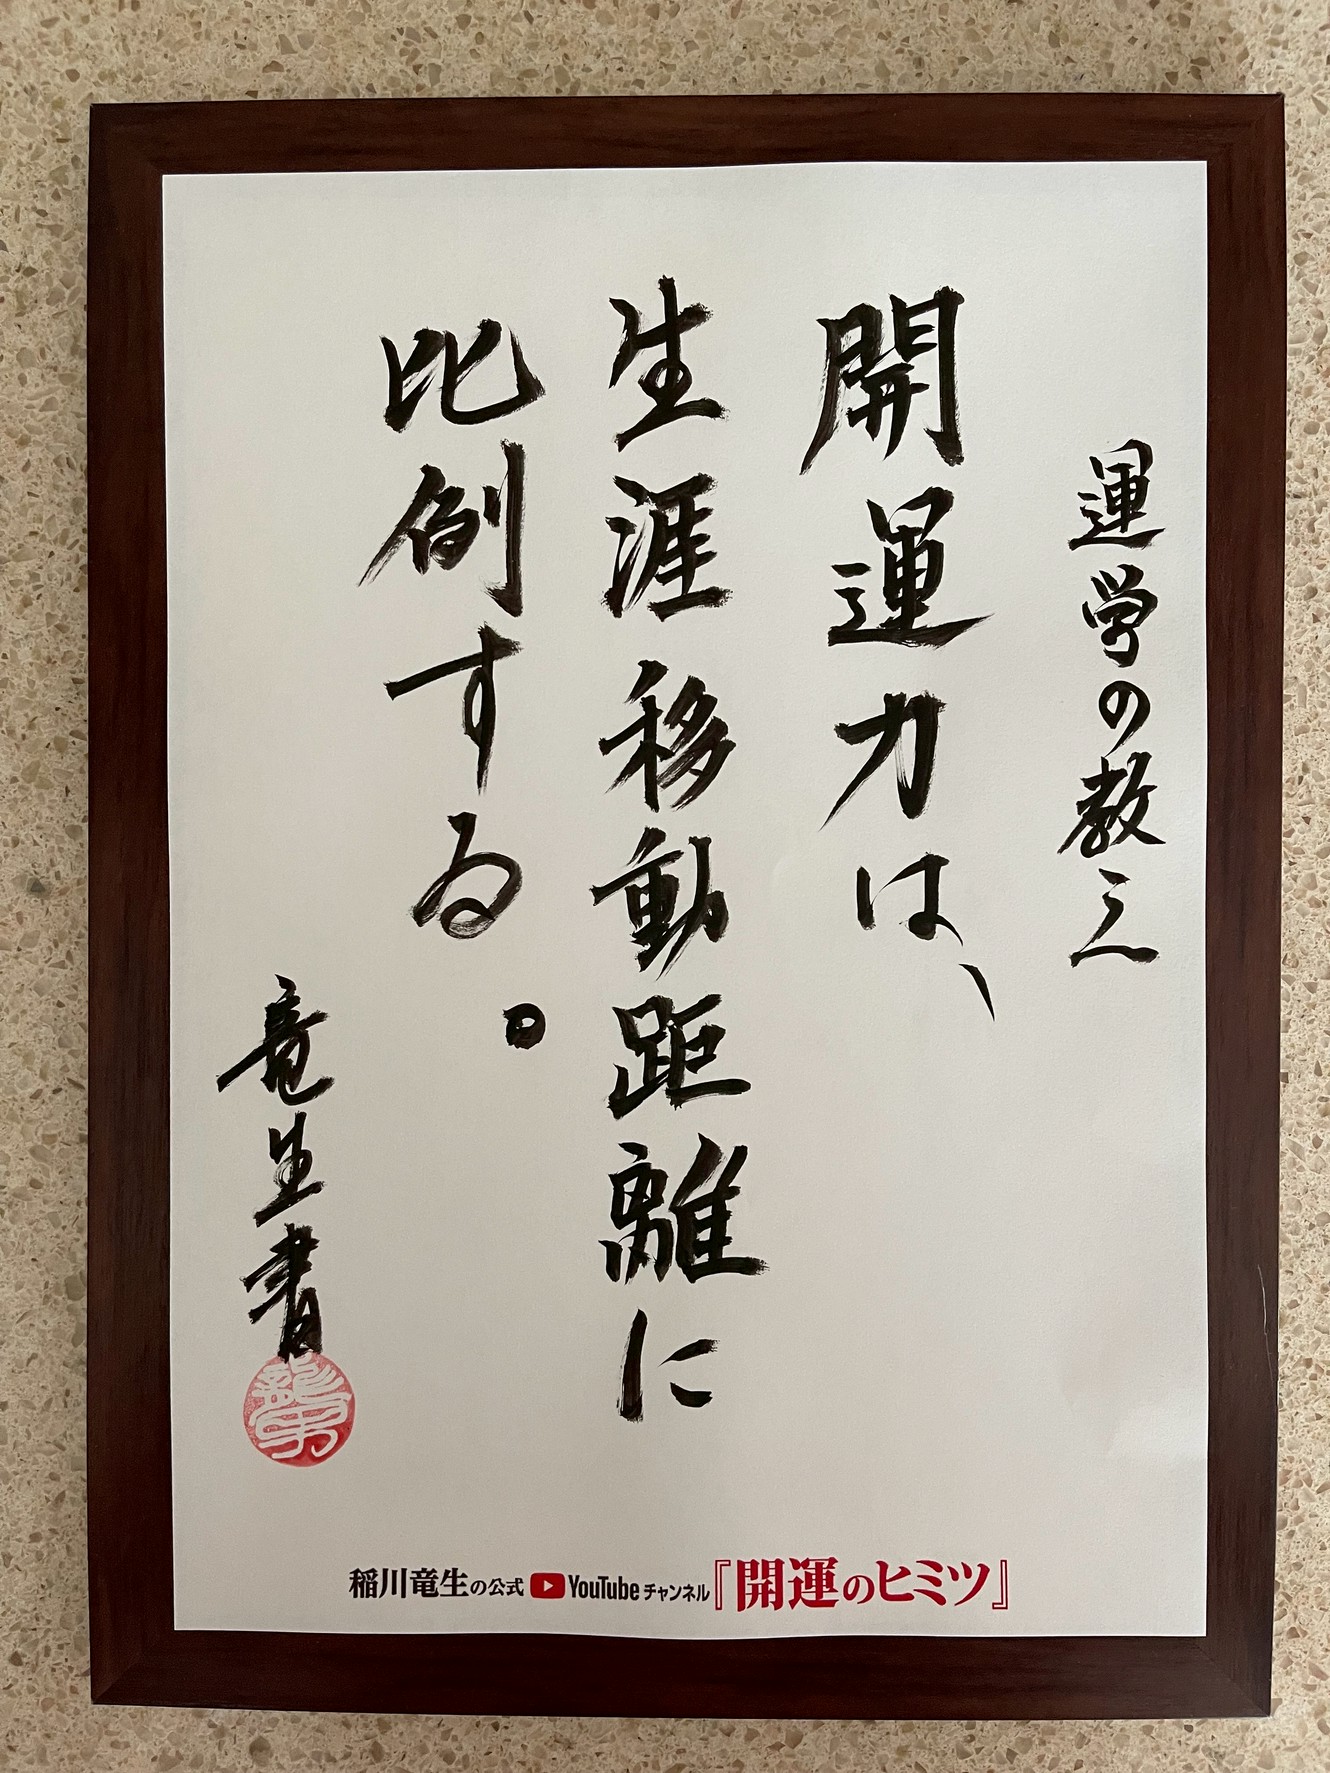 運学の教え
開運力は、
生涯移動距離に
比例する。
竜生書
稲川竜生の公式 YouTube チャンネル『開運のヒミツ』